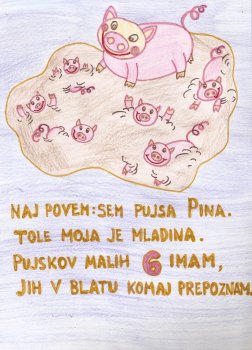 NAJ POVEM: SEM PUJSA PINA.
TOLE MOJA JE MLADINA.
PUJSKOV MALIH 6 IMAM,
JIH V BLATU KOMAJ PREPOZNAM.